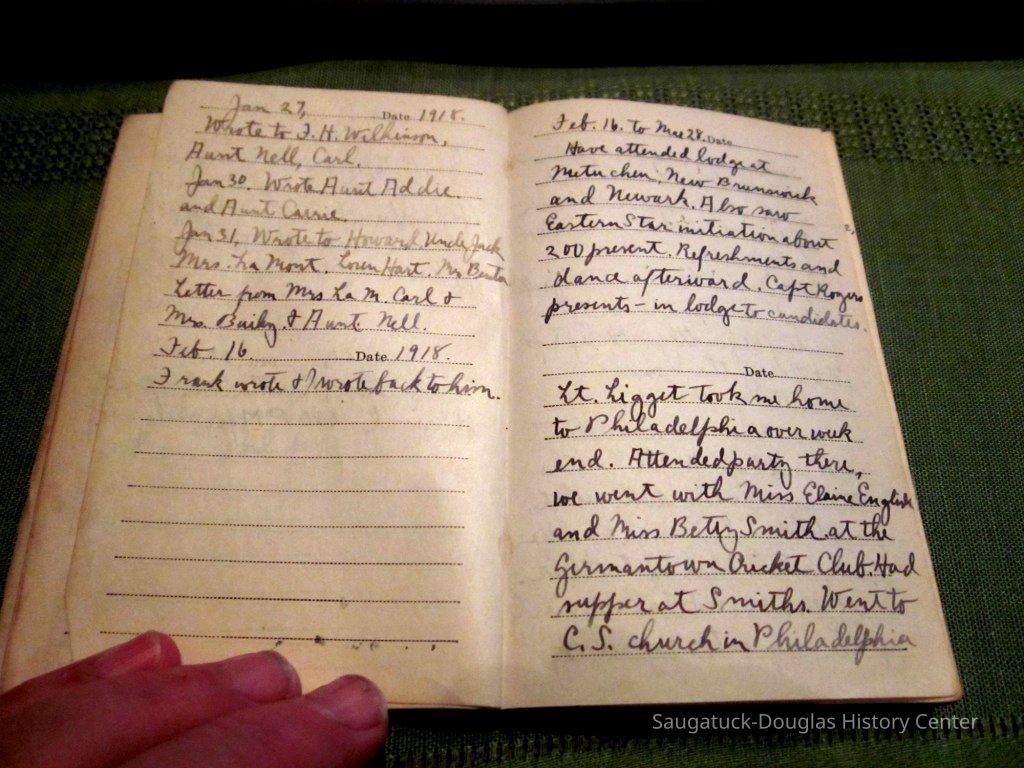 Jan 27, Date 1918.
Wrote to F. H. Wilkinson,
Aunt Nell, Carl.
Jan 30. Wrote Aunt Addie
and Aunt Carrie.
Jan 31, Wrote to Howard Uncle Jack
Mrs. La Mont. Loren Hart. Mr Benton
Letter from Mrs La M. Carl &
Mrs. Baily. & Aunt Nell.
Feb. 16. Date 1918.
Frank wrote & I wrote back to him.
Feb. 16. to Mar 28. Date
Have attended lodge at
Metuchen, New Brunswick
and Newark. Also saw
Eastern Star initiation about
200 present. Refreshments and
dance afterward. Capt Rogers
presents - in lodge to candidates.
Date
Lt. Ligget took me home
to Philadelphia over week
end. Attended party there,
we went with Miss Elaine English
and Miss Betty Smith at the
Germantown Cricket Club. Had
supper at Smiths. Went to
C. S. church in Philadelphia
Saugatuck-Douglas History Center